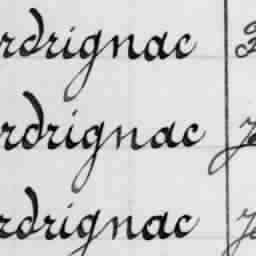 rdrignac
rdrignac
rdrignac